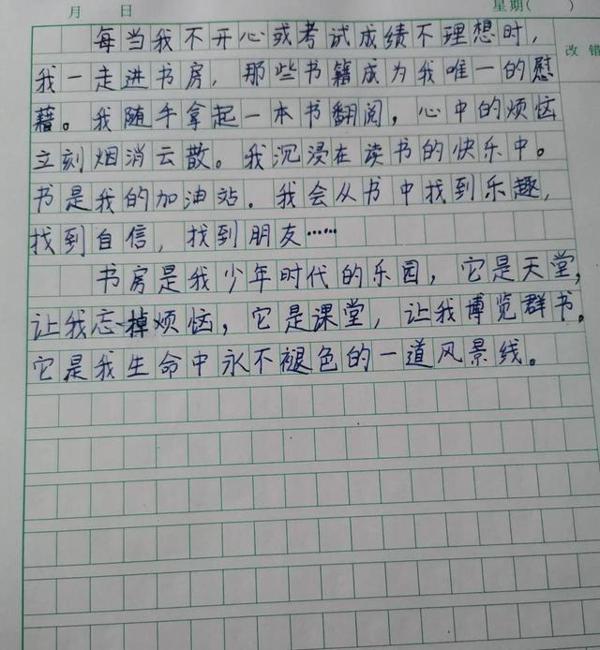 月 日 星期( )
改错
每当我不开心或考试成绩不理想时,
我一走进书房,那些书籍成为我唯一的慰
藉。我随手拿起一本书翻阅,心中的烦恼
立刻烟消云散。我沉浸在读书的快乐中。
书是我的加油站.我会从书中找到乐趣,
找到自信,找到朋友……
书房是我少年时代的乐园,它是天堂,
让我忘掉烦恼,它是课堂,让我博览群书。
它是我生命中永不褪色的一道风景线。